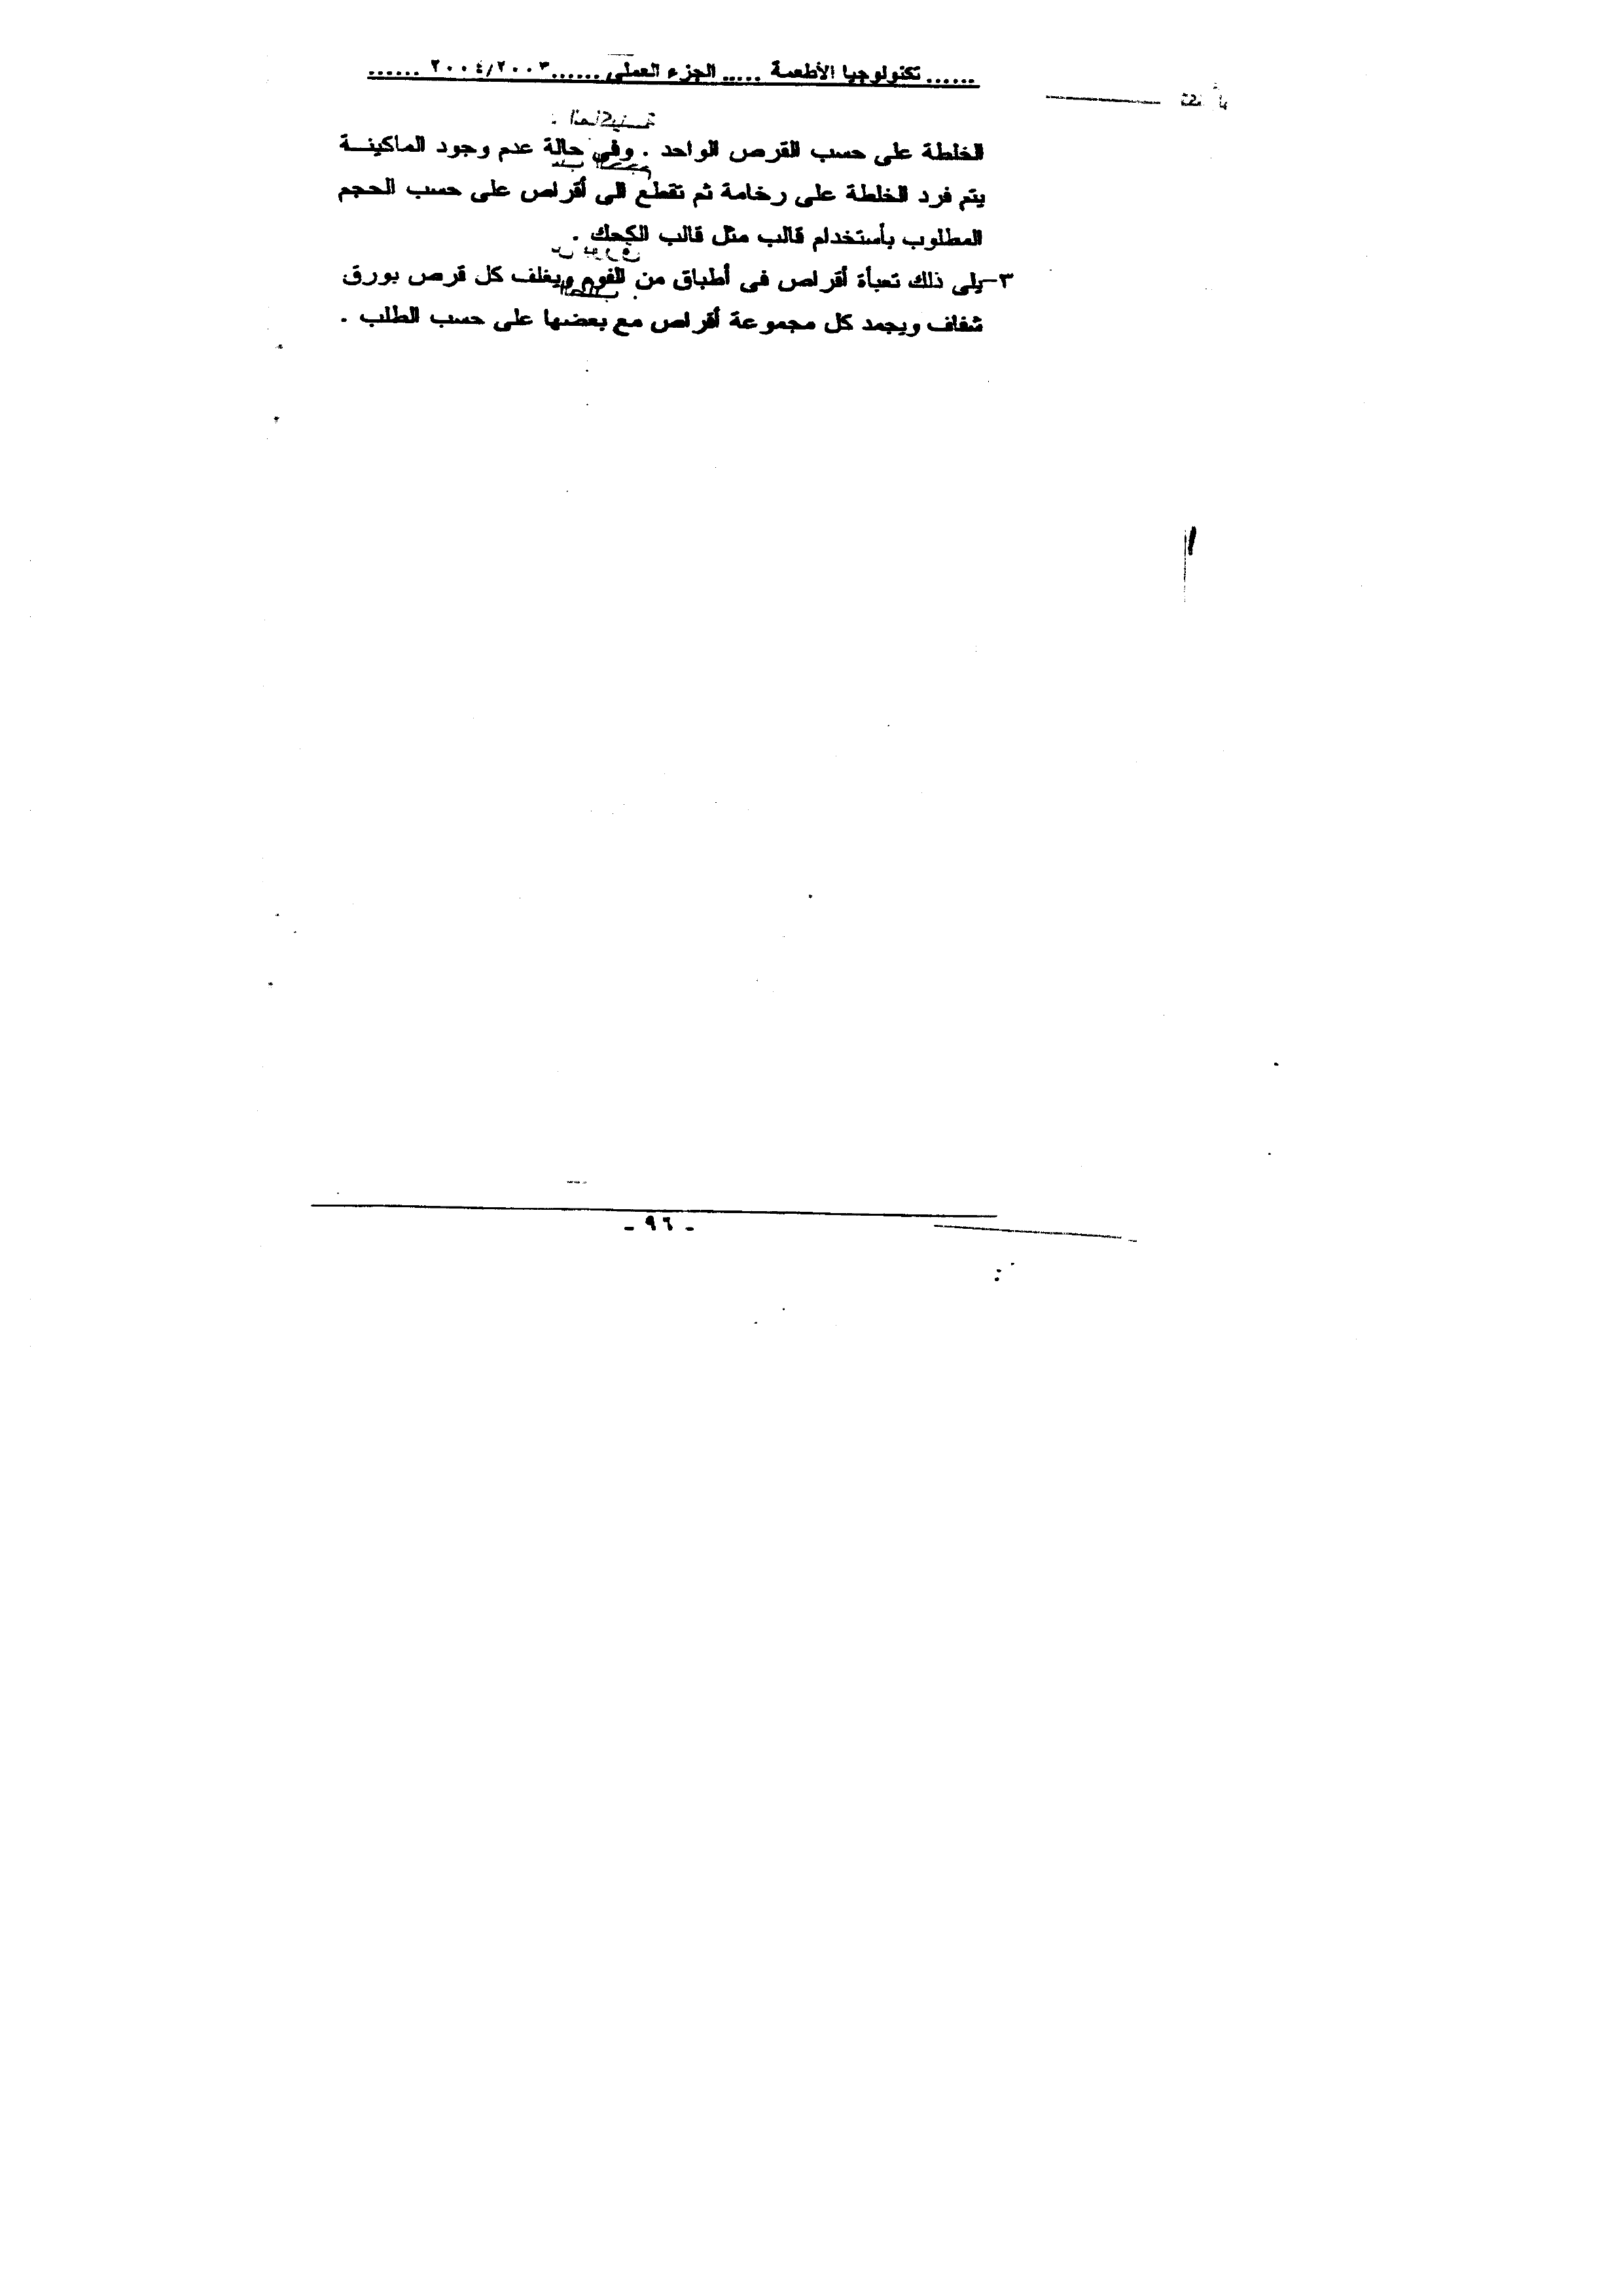 ...... تكنولوجيا الأطعمة ..... الجزء العملى ......٢٠٠٤/٢٠٠٣ ......
الخلطة على حسب القرص الواحد . وفى حالة عدم وجود الماكينــة
يتم فرد الخلطة على رخامة ثم تقطع الى أقراص على حسب الحجم
المطلوب بأستخدام قالب مثل قالب الكحك .
٣-يلى ذلك تعبأة أقراص فى أطباق من الفوم ويغلف كل قرص بورق
شفاف ويجمد كل مجموعة أقراص مع بعضها على حسب الطلب .
- ٩٦ -